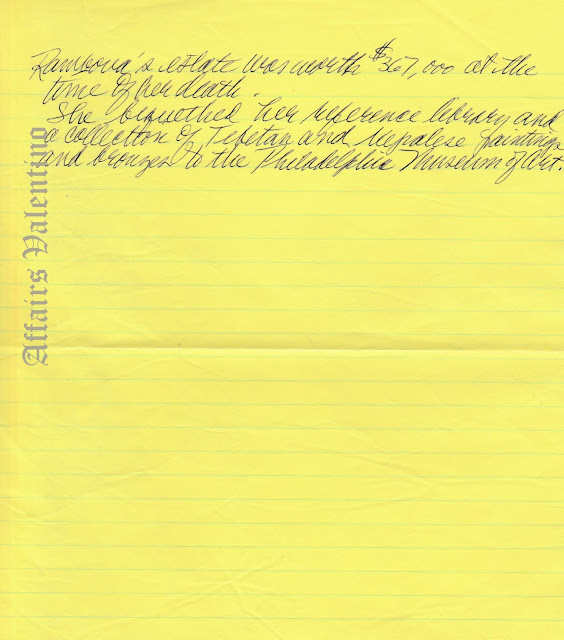 Rambova's estate was worth $367,000 at the
time of her death.
She bequethed her reference library and
a collection of Tebetan and Nepalese paintings
and bronzes to the Philadelphia Museum of Art.
Affairs Valentino